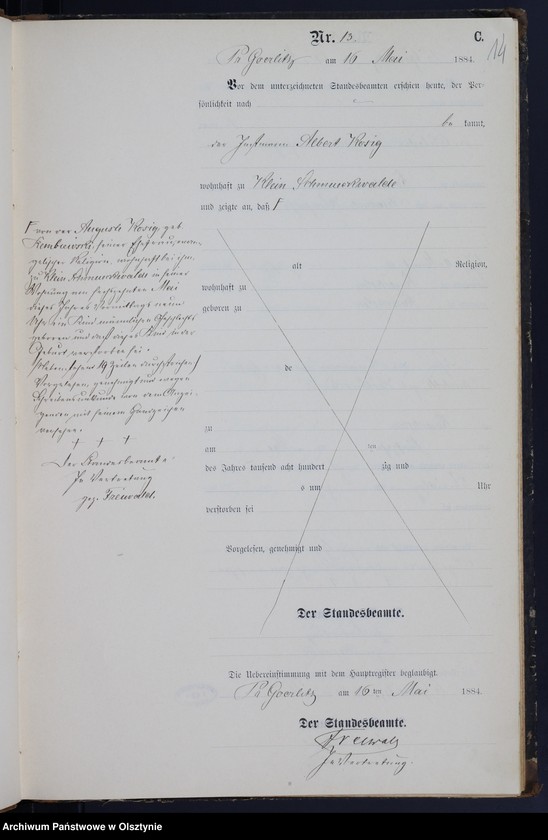 Nr. 13 C.
14
Pr. Goerlitz am 16 Mai 1884.
Vor dem unterzeichneten Standesbeamten erschien heute, der Per-
sönlichkeit nach
be kannt,
der Instmann Albert Kosig
wohnhaft zu Klein Schmueckwalde
und zeigte an, daß Γ
Γ von der Auguste Kosig, geb.
seiner Ehefrau, evan-
gelischer Religion, wohnhaft bei ihm
zu Klein Schmueckwalde in seiner
Wohnung am sechszehnten Mai
dieses Jahres Vormittags neun
Uhr ein Kind männlichen Geschlechts
geboren und daß dieses Kind in der
Geburt verstorben sei.
19 Zeilen durchstrichen
Vorgelesen, genehmigt und wegen
Schreibensunkunde von dem Anzei-
genden mit seinem Handzeichen
versehen.
+ + +
Der Standesbeamte
In Vertretung
gez. Freiwald.
alt Religion,
wohnhaft zu
geboren zu
de
zu
am ten
des Jahres tausend acht hundert zig und
s um Uhr
verstorben sei
Vorgelesen, genehmigt und
Der Standesbeamte.
Die Uebereinstimmung mit dem Hauptregister beglaubigt.
Pr. Goerlitz am 16 ten Mai 1884.
Der Standesbeamte.
Freiwald
In Vertretung.
Archiwum Państwowe w Olsztynie